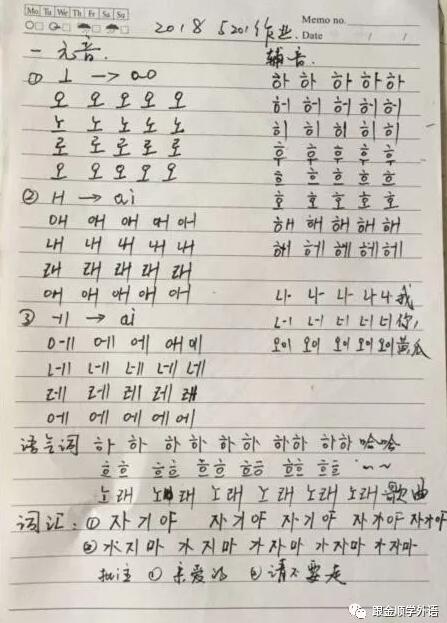 Mo Tu We Th Fr Sa Su
Memo no.
Date / /
2018 5201作业
一 元音.
① ㅗ → ao
오 오 오 오 오
노 노 노 노 노
로 로 로 로 로
오 오 오 오 오
② ㅐ → ai
애 애 애 애 애
내 내 내 내 내
래 래 래 래 래
애 애 애 애 애
③ ㅔ → ai
에 에 에 애 에
네 네 네 네 네
레 레 레 레 래
에 에 에 에 에
辅音.
하 하 하 하 하
허 허 허 허 허
히 히 히 히 히
후 후 후 후 후
흐 흐 흐 흐 흐
호 호 호 호 호
해 해 해 해 해
헤 헤 헤 헤 헤
나 나 나 나 나 我
너 너 너 너 너 你,
오이 오이 오이 오이 오이 黄瓜
语气词 하하 하하 하하 하하 하하 哈哈
흐흐 흐흐 흐흐 흐흐 흐흐 흐흐 ~~
노래 노래 노래 노래 노래 노래 歌曲
词汇: ① 자기야 자기야 자기야 자기야 자기야
② 가지마 가지마 가자마 가자마 가자마
批注 ① 亲爱的 ② 请不要走
跟金顺学外语